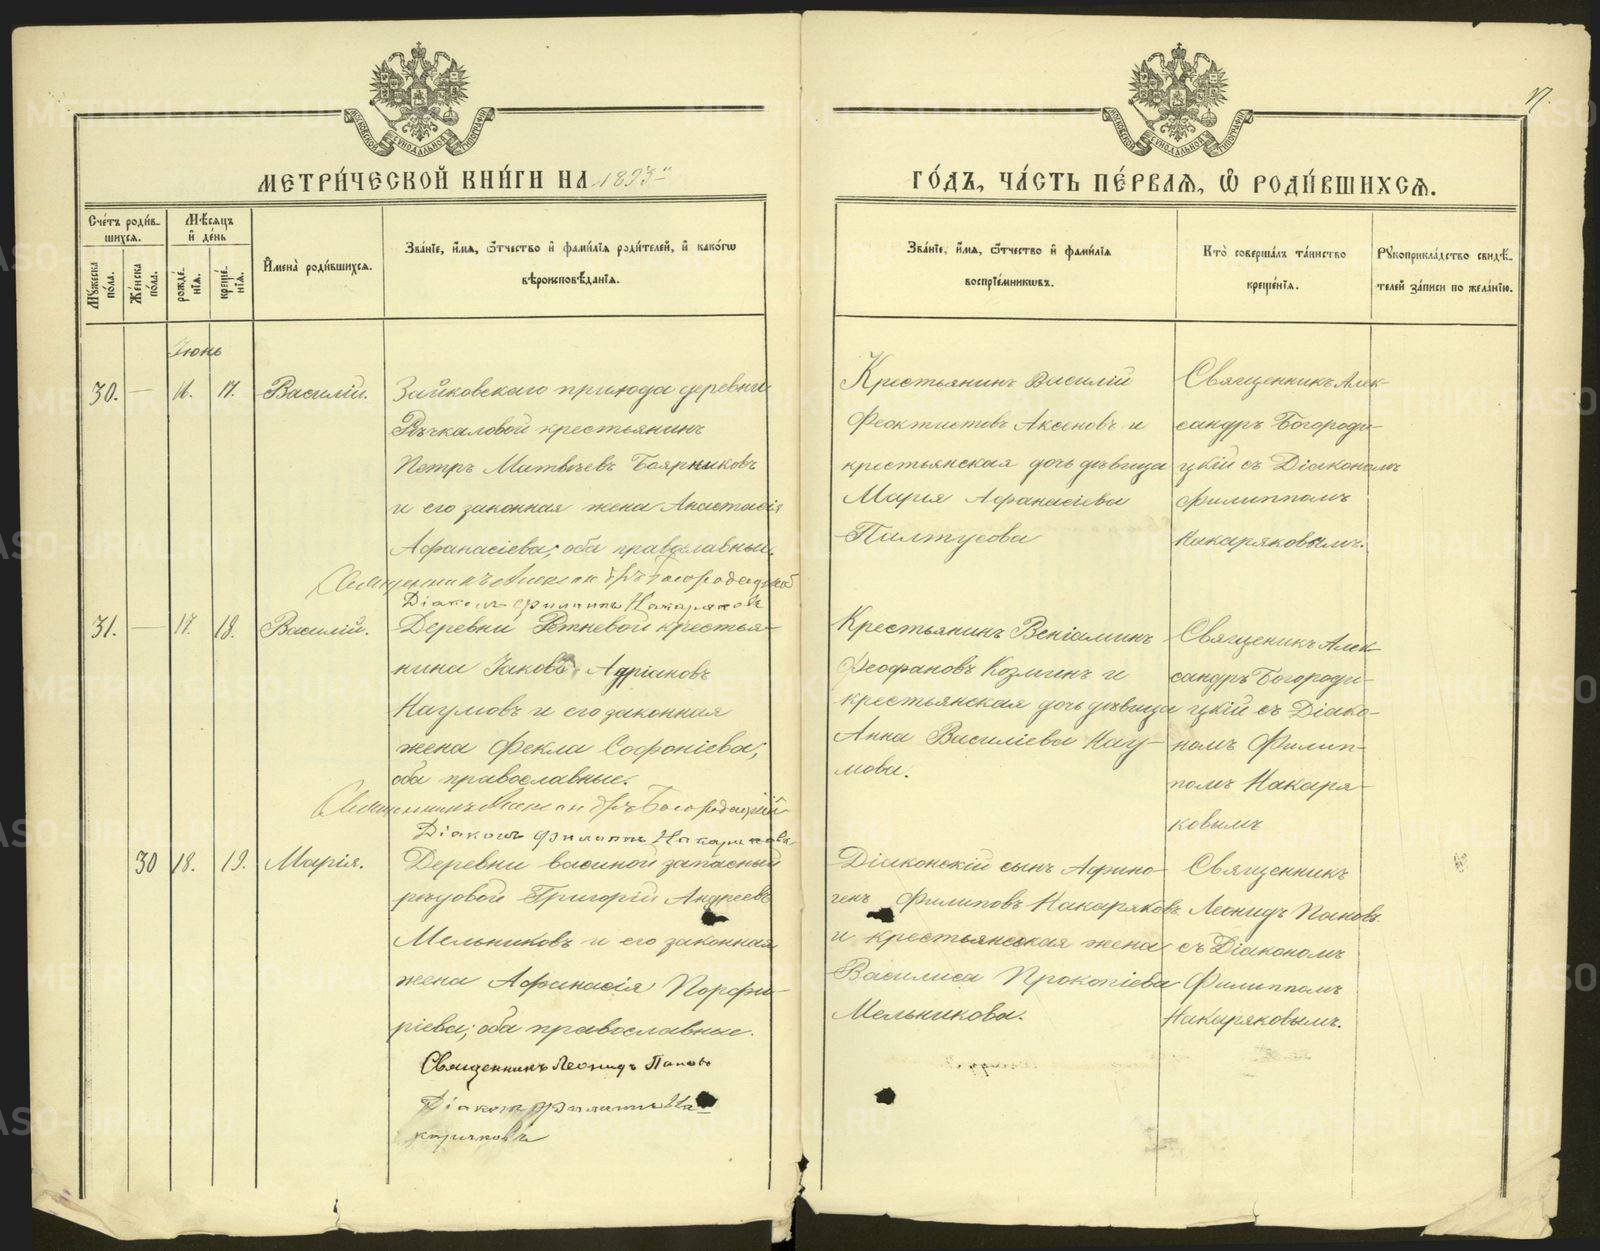 17.
МЕТРИ́ЧЕСКОЙ КНИ́ГИ НА 1893 ГО́ДЪ, ЧА́СТЬ ПЕ́РВАѦ, Ѡ҆ РОДИ́ВШИХСѦ.
Сче́тъ роди́в-
шихсѧ.
Мѣ́сѧцъ
и҆ де́нь
Мꙋ́жеска по́ла.
Же́нска по́ла.
рожде́-
нїѧ.
креще́-
нїѧ.
И҆мена̀ роди́вшихсѧ.
Зва́нїе, и҆́мѧ, ѻ҆́тчество и҆ фами́лїѧ роди́телей, и҆ како́гѡ
вѣроисповѣ́данїѧ.
Зва́нїе, и҆́мѧ, ѻ҆́тчество и҆ фами́лїѧ
воспрїе́мникѡвъ.
Кто̀ соверша́лъ та́инство
креще́нїѧ.
Рꙋкоприкла́дство свидѣ́-
телей за́писи по жела́нїю.
Іюнь
30. — 16. 17. Василій.
Зайковскаго прихода деревни
Речкаловой крестьянинъ
Петръ Матвѣевъ Боярниковъ
и его законная жена Анастасія
Афанасіева; оба православные.
Священникъ Александръ Богородицкій
Діаконъ Филиппъ Накаряковъ
Крестьянинъ Василій
Феоктистовъ Аксеновъ и
крестьянская дочь дѣвица
Марія Афанасіева
Палтусова
Священникъ Алек-
сандръ Богороди-
цкій съ Діакономъ
Филиппомъ
Накаряковымъ.
31. — 17. 18. Василій.
Деревни Ретневой крестья-
нинъ Іаковъ Адріановъ
Наумовъ и его законная
жена Фекла Софоніева;
оба православные.
Священникъ Александръ Богородицкій
Діаконъ Филиппъ Накаряковъ
Крестьянинъ Веніаминъ
Феофановъ Козминъ и
крестьянская дочь дѣвица
Анна Василіева Нау-
мова.
Священникъ Алек-
сандръ Богороди-
цкій съ Діако-
номъ Филип-
помъ Накаря-
ковымъ
30 18. 19. Марія.
Деревни васиной запасный
рядовой Григорій Андреевъ
Мельниковъ и его законная
жена Афанасія Порфи-
ріева; оба православные.
Священникъ Леонидъ Пановъ
Діаконъ Филиппъ На-
каряковъ
Діаконскій сынъ Афино-
генъ Филиповъ Накаряковъ
и крестьянская жена
Василиса Прокопіева
Мельникова.
Священникъ
Леонидъ Пановъ
съ Діакономъ
Филиппомъ
Накаряковымъ.